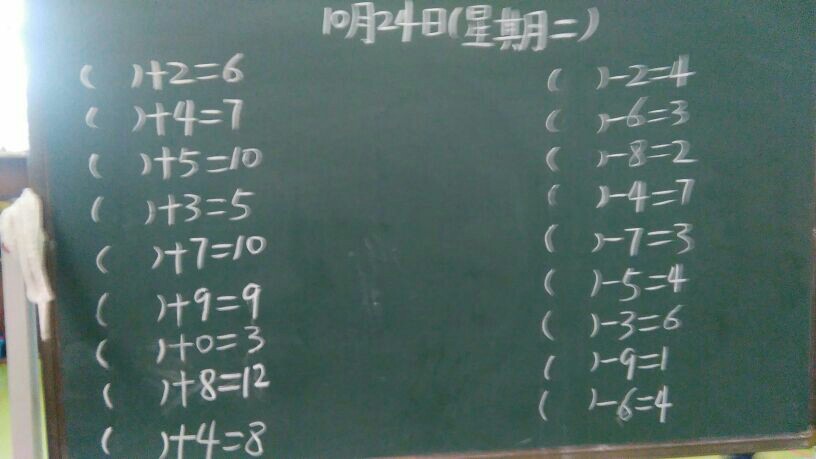 10月24日(星期二)
( )+2=6
( )+4=7
( )+5=10
( )+3=5
( )+7=10
( )+9=9
( )+0=3
( )+8=12
( )+4=8
( )-2=4
( )-6=3
( )-8=2
( )-4=7
( )-7=3
( )-5=4
( )-3=6
( )-9=1
( )-6=4